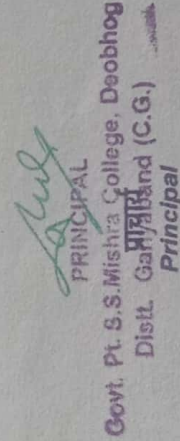 PRINCIPAL
Govt. Pt. S.S.Mishra College, Deobhog
प्राचार्य
Distt. Gariyaband (C.G.)
Principal